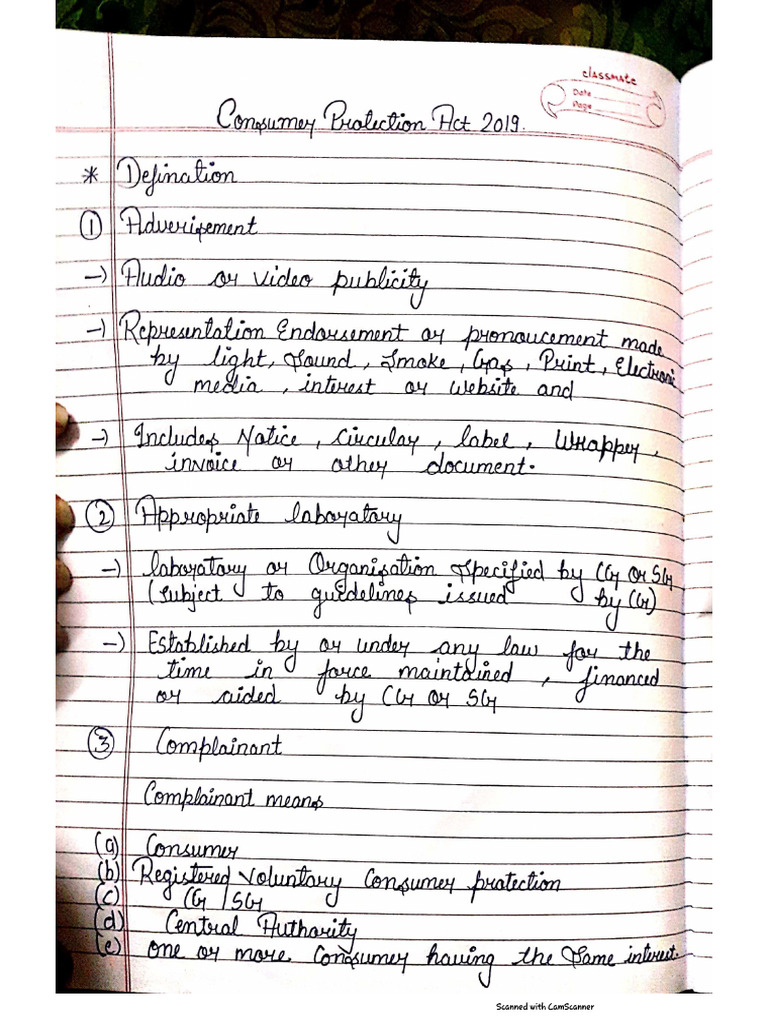 classmate
Date
Page
Consumer Protection Act 2019.
* Defination
① Adverisement
→) Audio or video publicity
→) Representation Endorsement or pronoucement made
by light, Sound, Smoke, Gas, Print, Electronic
media, interest or website and
→) Includes Notice, Circular, label, Wrapper,
invoice or other document.
② Appropriate laboratary
→) laboratary or Organisation Specified by CG or SG
(Subject to guidelines issued by CG)
→) Established by or under any law for the
time in force maintained, financed
or aided by CG or SG
③ Complainant
Complainant means
(a) Consumer
(b) Registered voluntary consumer protection
(c) CG / SG
(d) Central Authority
(e) one or more Consumer having the Same interest.
Scanned with CamScanner